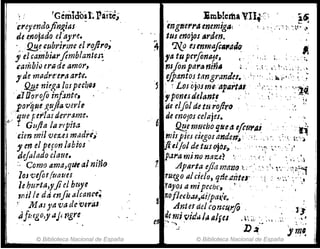 Gemidos I. Parte,
creyendo fingias
de enojado el ayre.
Que eubrirme el rostro,
y el cambiar semblantes:
cambio era de amor,
y de madre era arte.
Que niega los pechos
al lloroso infante,
porque gusta verle
que perlas derrame.
Gusta la repita
cien mil vezes madre,
y en el peçon labios
desalado clave.
Como ama, que al niño
los vesos suaves
le hurta, y si el huye
mil le da en su alcance.
Mas ya va de veras
à fuego, y a sangre
© Biblioteca Nacional de España
Emblema VII.
enguerra enemiga.
tus enojos arden.
No es enmascarado
ya tu personaje,
ni son para niña
espantos tan grandes.
Los ojos me apartas
y pones delante
de el sol de tu rostro
de enojos celajes.
Que mucho que a escuras
mis pies ciegos anden,
si el sol de tus ojos,
para mi no naze?
Aparta essa mano
ruego al cielo, que antes
rayos a mi pecho,
no flechas, dispare.
Antes al
de mi vida la
D 2
y me
© Biblioteca Nacional de España